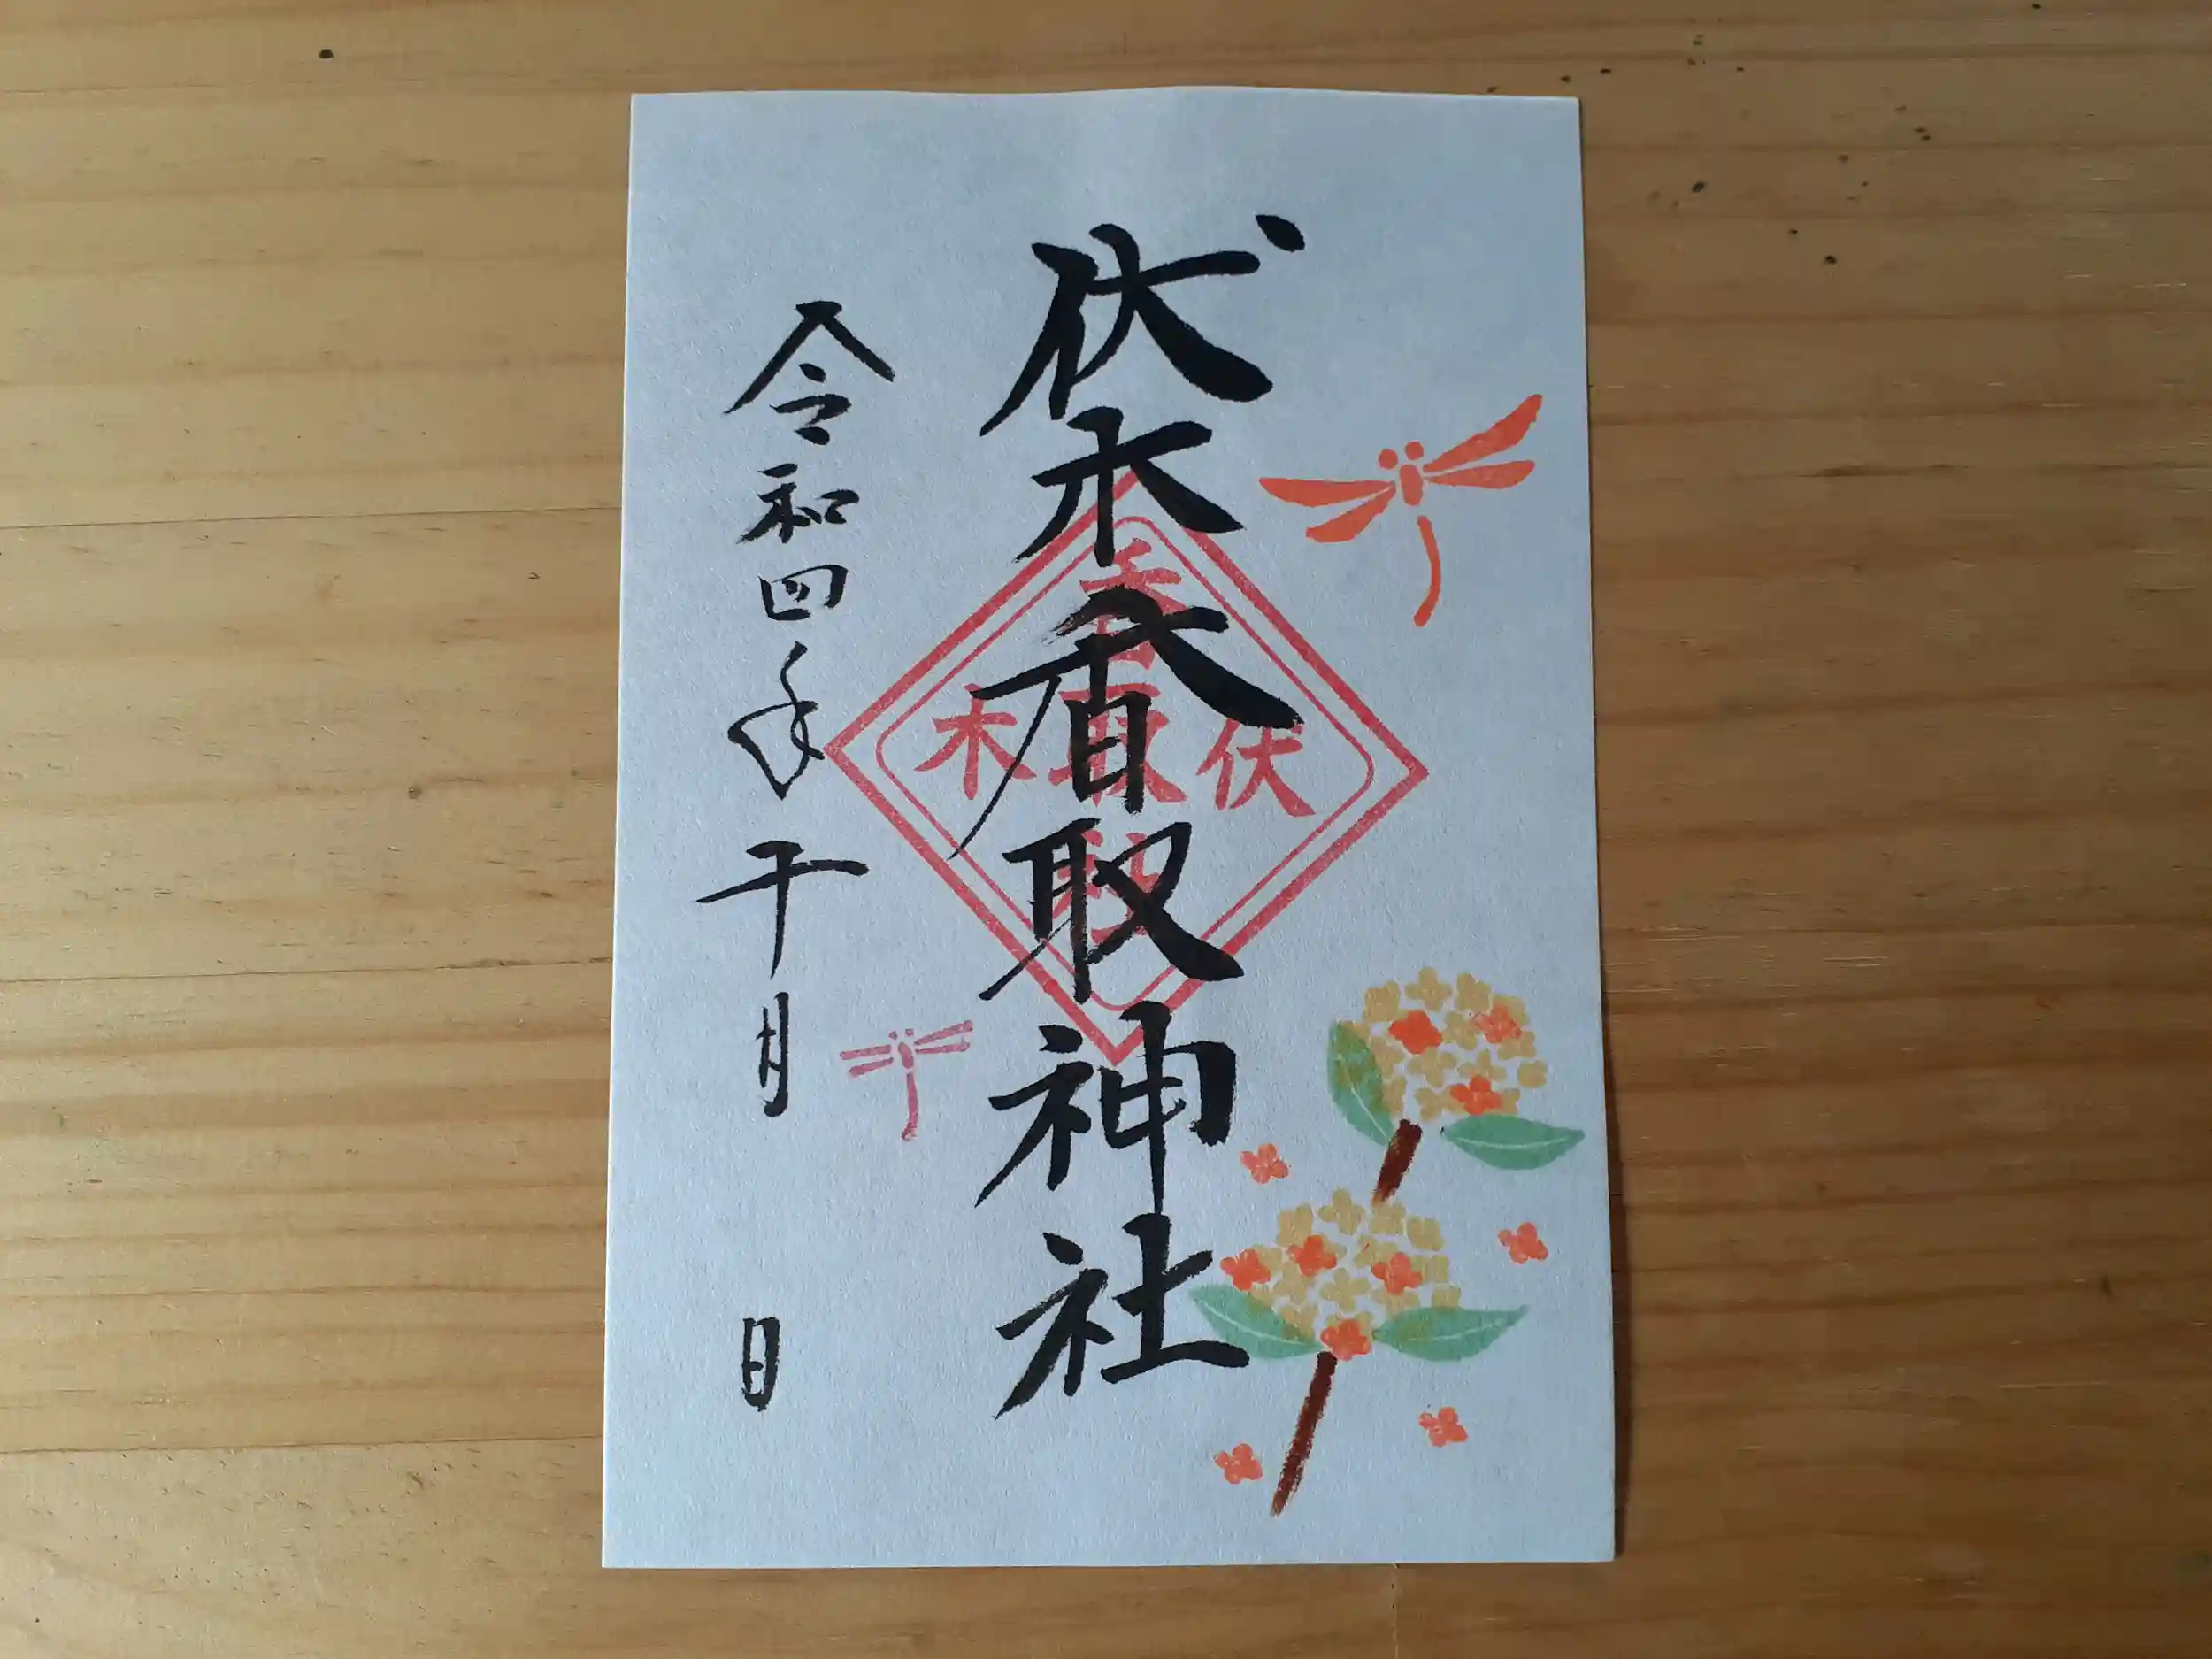 伏木香取神社
令和四年十月 日
伏
香取
木